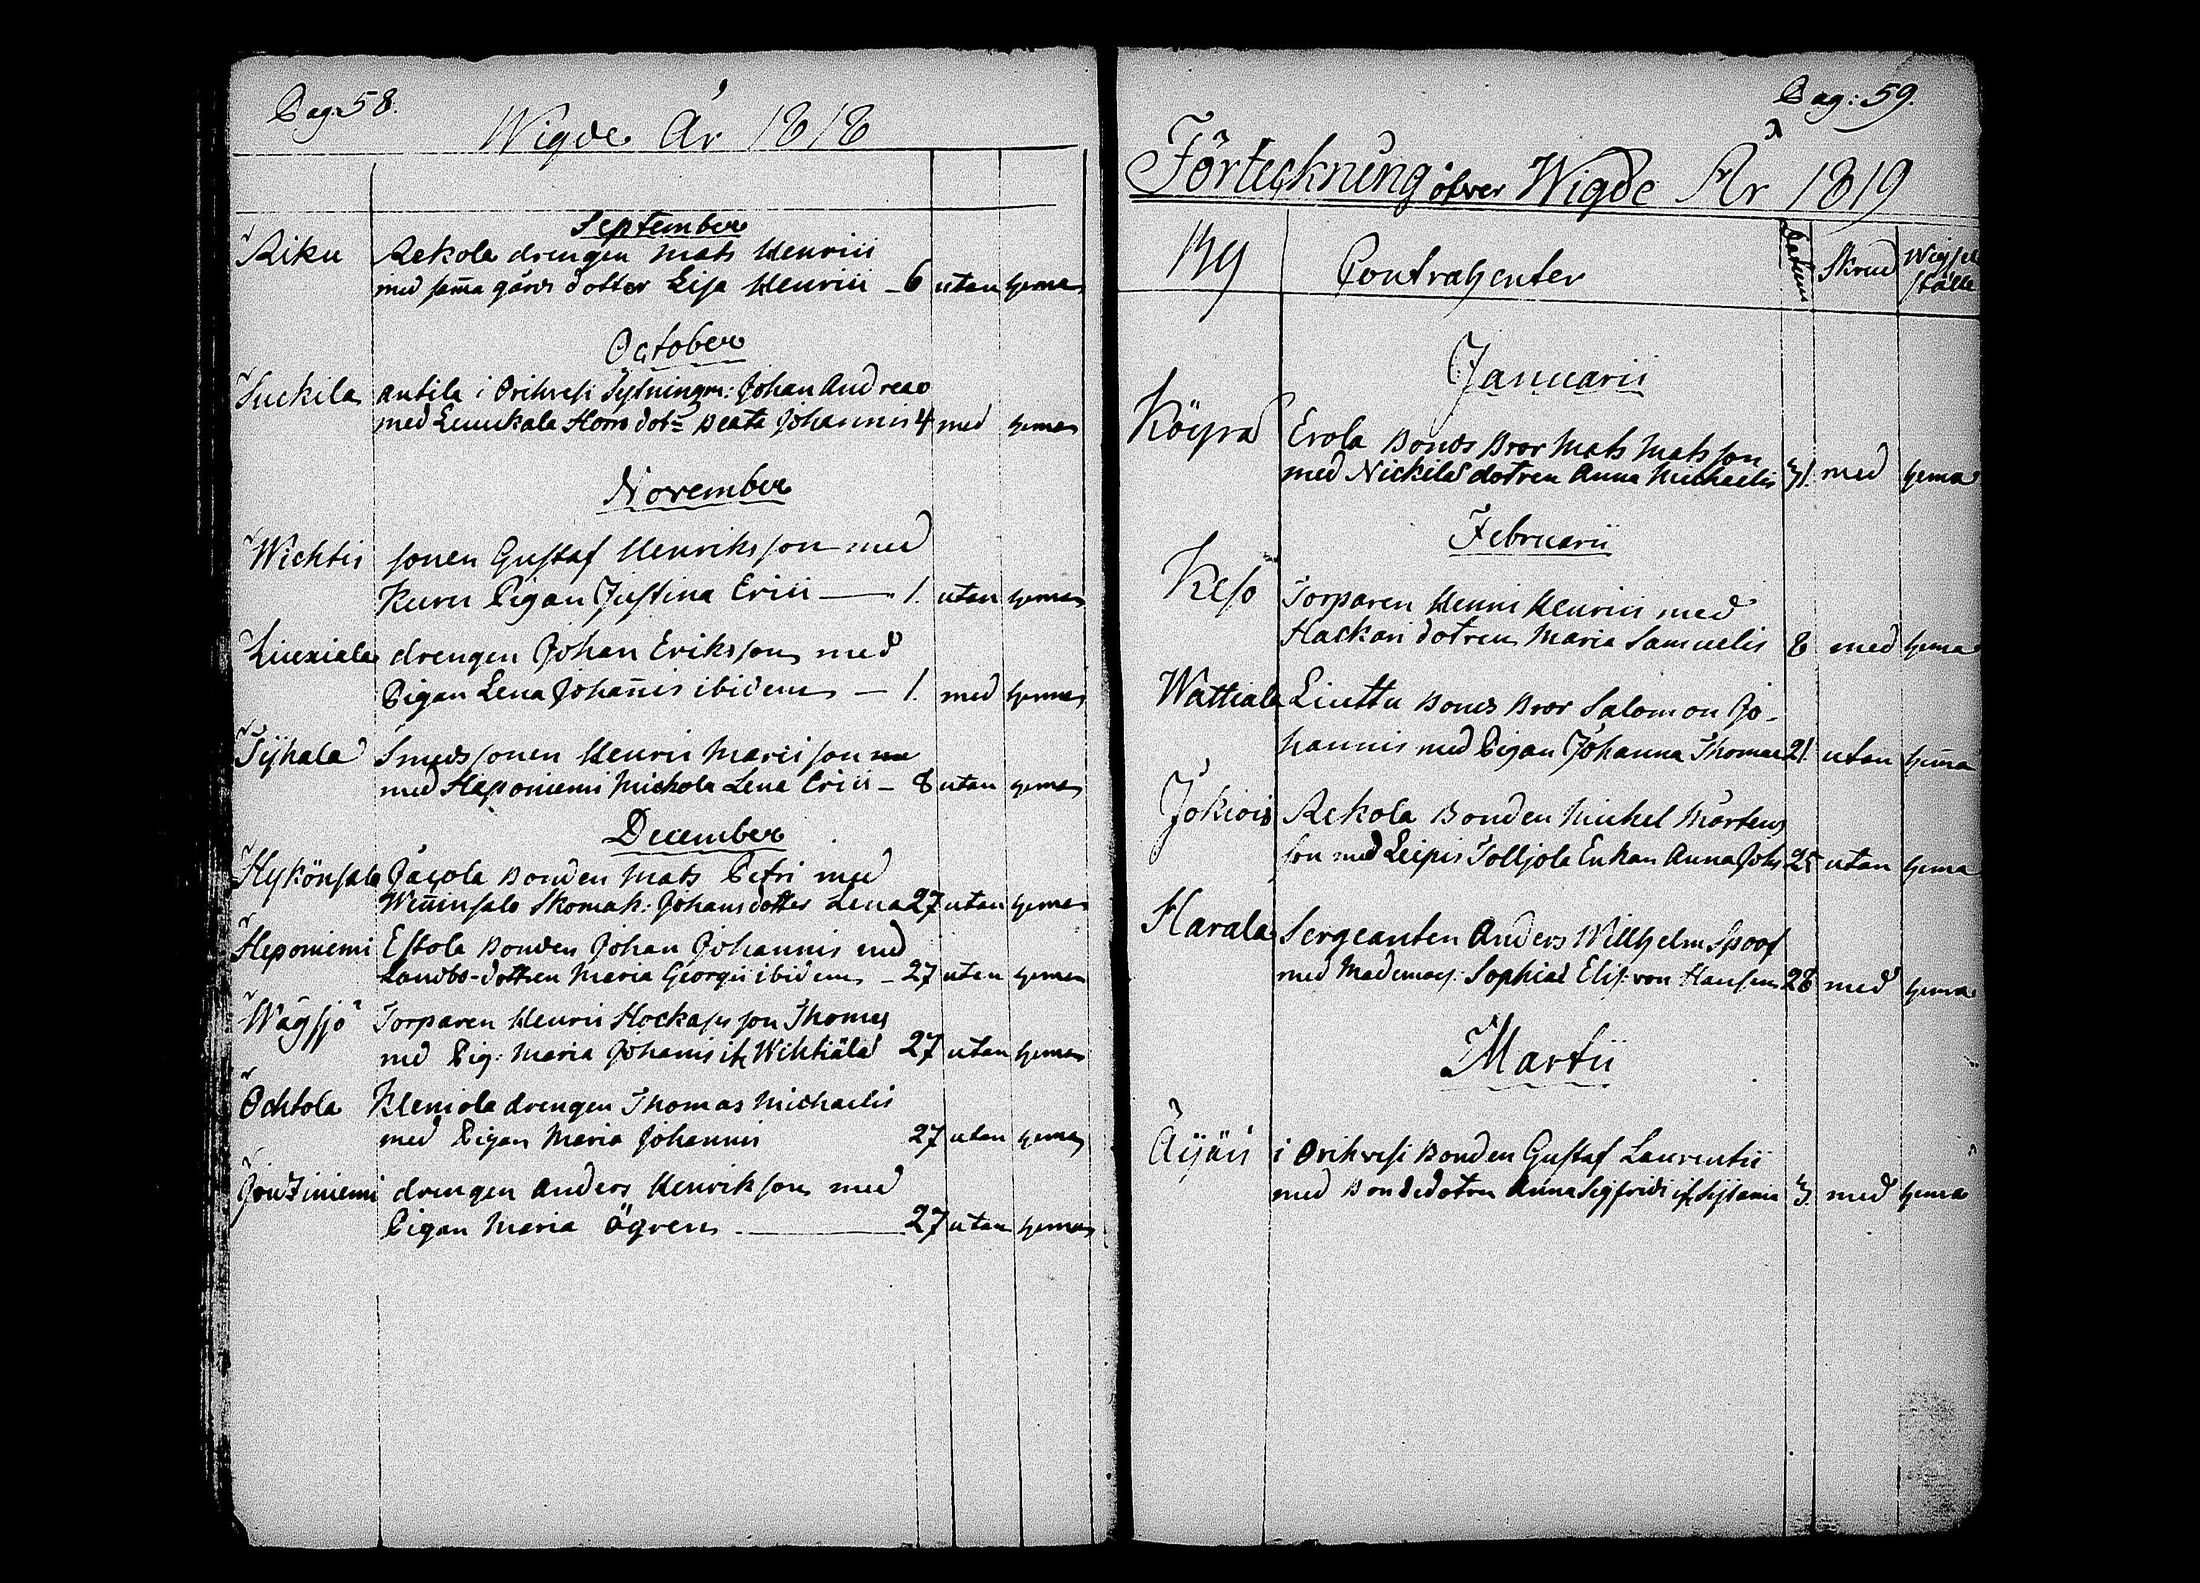 Pag: 58.
Wigde År 1818
September
Riku Rekola drengen Mats Henrici
med sama gårds dotter Lisa Henrici - 6 utan hema
October
Suckila Antila i Orihvesi Sytninigm: Johan Andreae
med Leuckala Horn dotr Beata Johannis 4 med hema
November
Wichtis sonen Gustaf Henriksson med
Kuru Pigan Justina Erici — 1. utan hema
Liuxiala drengen Johan Eriksson med
Pigan Lena Johañis ibidem — 1. med hema
Tÿhala Smedssonen Henric Maricsson
med Haponiemi Michola Lena Erici - 8 utan hema
December
Hykönsala Jacola Bonden Mats Petri med
Wiñinsalo Skomak: Johansdotter Lena 27 utan hema
Heponiemi Eskola Bonden Johan Johannis med
Landbo-dottren Maria Georgii ibidem - 27 utan hema
Wågsjö Torparen Henric Hockapsson Thomes
med Pig: Maria Johanis if Wihtiälä 27 utan hema
Ochtola Kleniola drengen Thomas Michaelis
med Pigan Maria Johannis 27 utan hema
Joutziniemi drengen Anders Henriksson med
Pigan Maria Ögren — 27 utan hema
Pag: 59.
Förteckning öfver Wigde År 1819
By Contrahenter Datum Skrud Wigsel
ställe
Januarii
Köyrä Erola Bonds Bror Mats Matsson
med Nickilä dotren Anna Michaelis 31. med hema
Februarii
Keso Torparen Henric Henrici med
Hackari dotren Maria Samuelis 8 med hema
Wattiala Liuttu Bonds Bror Salomon Jo-
hannis med Pigan Johanna Thomae 21. utan hema
Jokiois Rekola Bonden Michel Mårtens
son med Leipis Tolljola Enkan Anna Johs 25 utan hema
Harala Sergeanten Anders Willhelm Spoof
med Mademois: Sophia Elis: von Hausen 28 med hema
Martii
Äÿäis i Orihvesi Bonden Gustaf Laurentii
med Bondedotren Anna Sigfridi if Sijtama 3. med hema